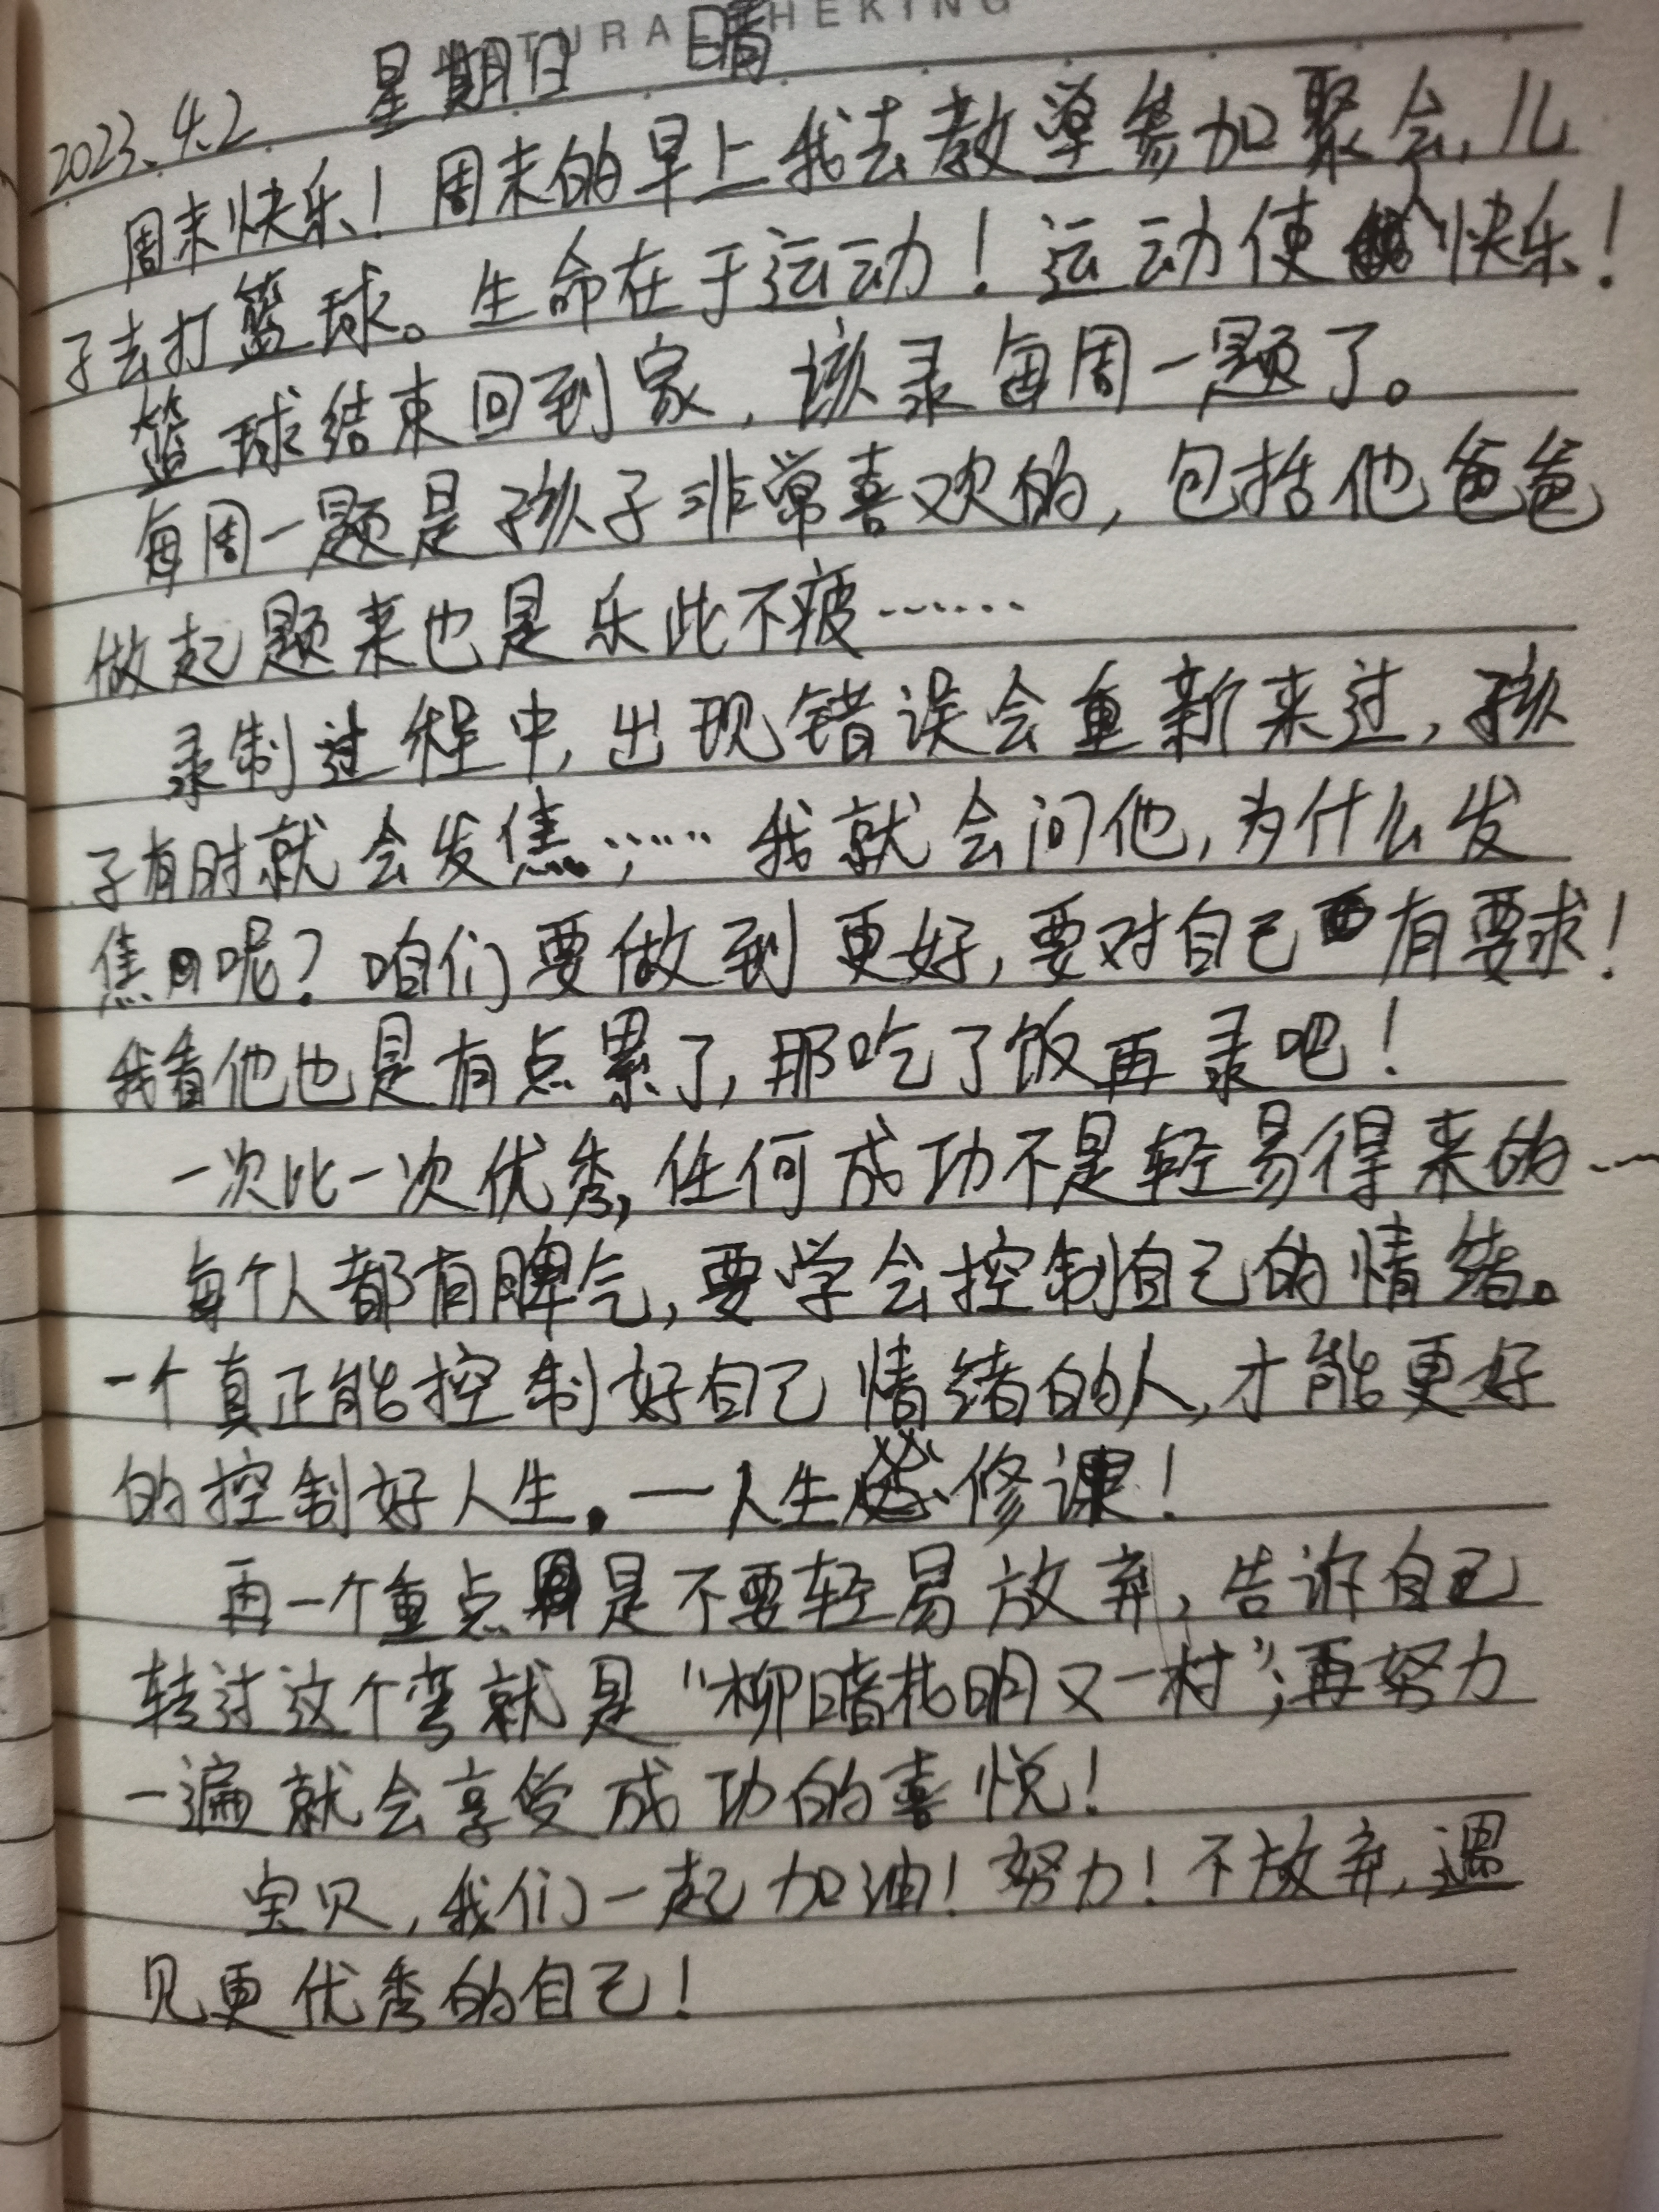 NATURAL THEKING
2023.4.2 星期日 晴
周末快乐！周末的早上我去教堂参加聚会，儿
子去打篮球。生命在于运动！运动使人快乐！
篮球结束回到家，该录每周一题了。
每周一题是孩子非常喜欢的，包括他爸爸
做起题来也是乐此不疲……
录制过程中，出现错误会重新来过，孩
子有时就会发焦……我就会问他，为什么发
焦呢？咱们要做到更好，要对自己有要求！
我看他也是有点累了，那吃了饭再录吧！
一次比一次优秀，任何成功不是轻易得来的……
每个人都有脾气，要学会控制自己的情绪。
一个真正能控制好自己情绪的人，才能更好
的控制好人生。—人生修课！
再一个重点是不要轻易放弃，告诉自己
转过这个弯就是“柳暗花明又一村”；再努力
一遍就会享受成功的喜悦！
宝贝，我们一起加油！努力！不放弃，遇
见更优秀的自己！